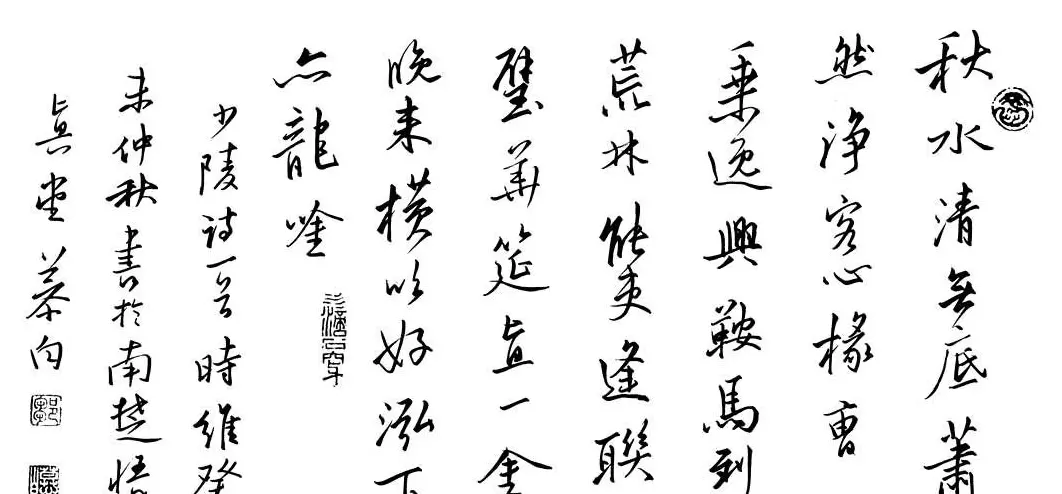 秋水清無底蕭
然净客心掾曹
乘逸興鞍馬到
荒林能吏逢聯
璧華筵直一金
晚来横吹好泓下
亦龍唫
少陵诗一首時維癸
未仲秋書於南楚悟
真堂慕白